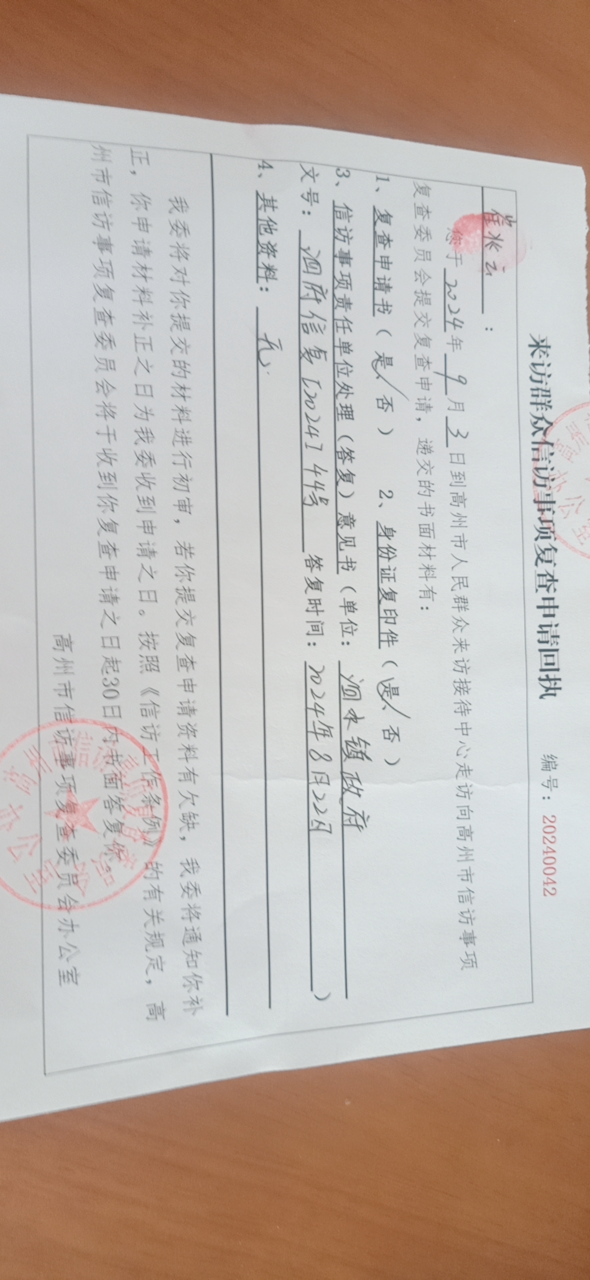 来访群众信访事项复查申请回执
编号：20240042
崔兆云：
您于2024年9月3日到高州市人民群众来访接待中心走访向高州市信访事项
复查委员会提交复查申请，递交的书面材料有：
1、复查申请书（是/否） 2、身份证复印件（是/否）
3、信访事项责任单位处理（答复）意见书（单位：泗水镇政府
文号：泗府信复[2024]44号 答复时间：2024年8月22日）
4、其他资料：无.
我委将对你提交的材料进行初审，若你提交复查申请资料有欠缺，我委将通知你补
正，你申请材料补正之日为我委收到申请之日。按照《信访工作条例》的有关规定，高
州市信访事项复查委员会将于收到你复查申请之日起30日内书面答复你。
高州市信访事项复查委员会办公室